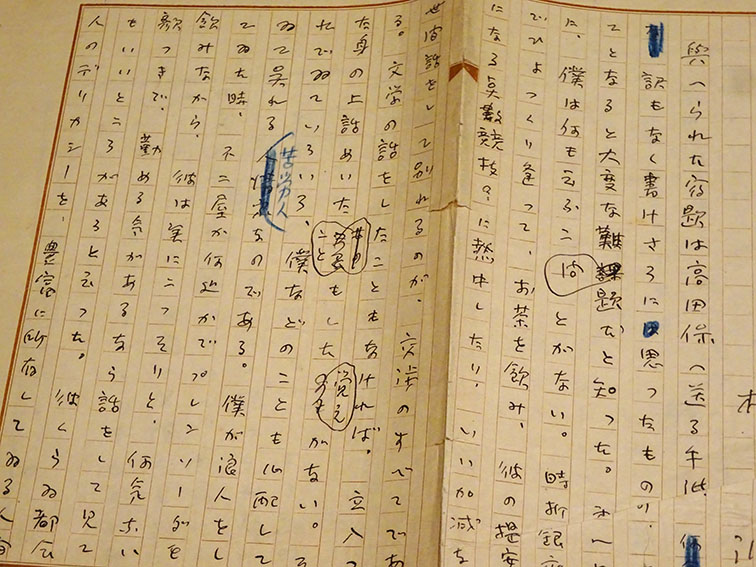 與へられた宿題は高田保へ送る手紙、
訳もなく書けさうに思つたものゝ、
てとなると大変な難題だと知つた。オ一に
に、僕は何も云ふことがない。時折銀座
でひよつくり逢つて、お茶を飲み、彼の提案
になる点数競技?に熱中したり、いい加減な
世間話をして別れるのが、交渉のすべてであ
る。文学の話をしたこともなければ、立入つ
た身の上話めいたこともした覚えがない。そ
れでゐていろいろ、僕などのことも心配して
ゐて呉れる苦労人なのである。僕が浪人をし
てゐた時、不二屋か何処かでプレンソーダを
飲みながら、彼は実にこつそりと、何気ない
顔つきで、勤める気があるなら話をして見て
もいいところがあると云つた。彼くらゐ都会
人のデリカシーを、豊富に所有してゐる人間